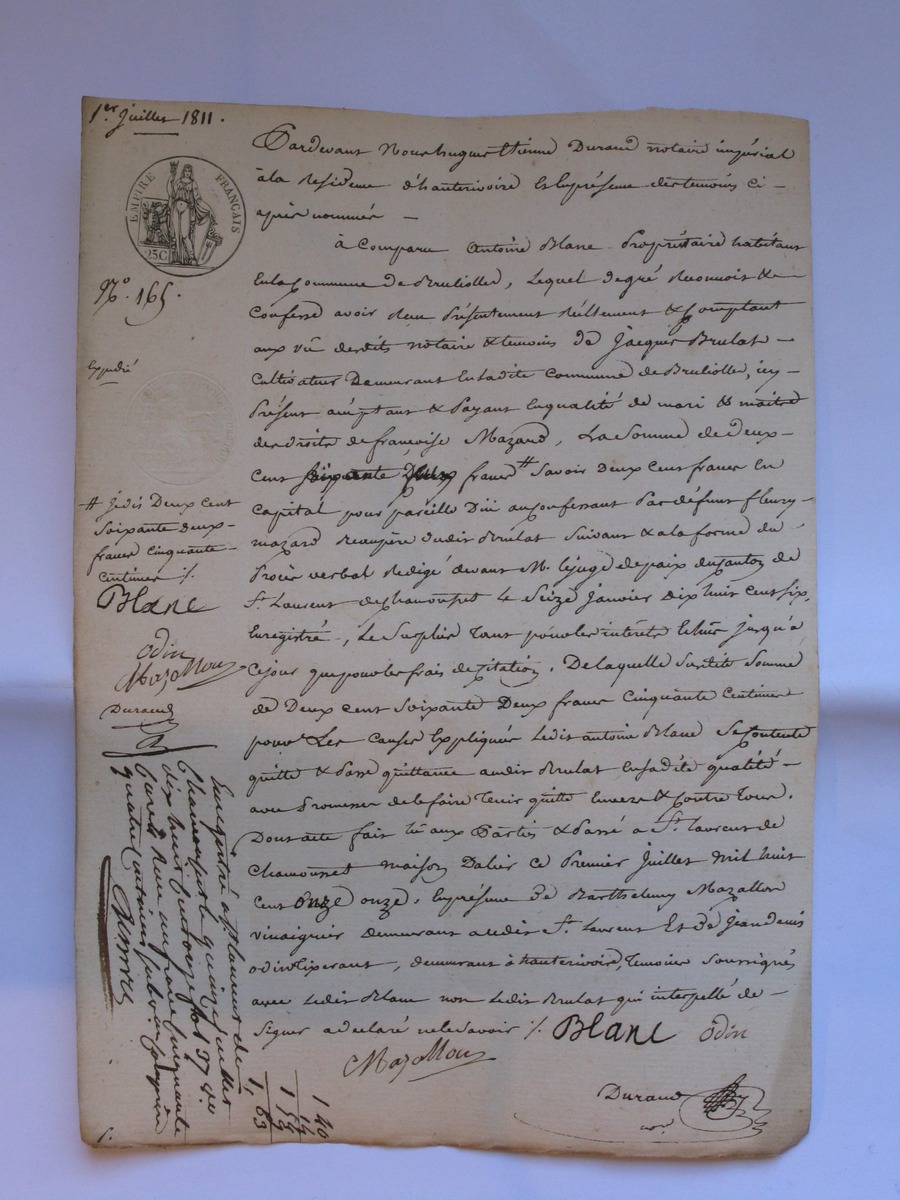 1er Juillet 1811.
EMPIRE FRANÇAIS
25C
No. 165.
Expédié
Pardevant Nous hugues Etienne Durand notaire impérial
à la Residence d'hauterivoire Et en présence des temoins ci-
après nommés -
à Comparu Antoine Blanc Propriétaire habitant
En la Commune de Brulliolles, Lequel de gré Reconnoit &
Confesse avoir Reçu Présentement Réellement & Comptant
aux vû desdits notaire & temoins de Jacques Brulat -
Cultivateur Demeurant En ladite Commune de Brulliolles, icy
Présent acceptant & Payant En qualité de mari & maitre
des Droits de francoise Mazard, La Somme de Deux-
Cent francs # Savoir Deux Cent francs En
Capital pour pareille Dûe au Confessant Par défunt fleury
mazard Beaupère dudit Brulat Suivant & a la forme du
Procès verbal Redigé devant M. le juge de paix du Canton de
St. Laurent de Chamousset le Seize Janvier Dix huit cent six,
Enregistré, Le Surplus Tant pour les interets Echus jusqu'à
Cejour que pour les frais de Citation. De laquelle Susdite Somme
de Deux cent Soixante Deux francs Cinquante Centimes
pour Les Causes Expliquées Ledit antoine Blanc Se Contente
quitte & Passe quittance audit Brulat En sadite qualité -
avec Promesse de le faire Tenir quitte Envers & Contre Tous.
Dont acte fait lû aux Parties & Passé a St. Laurent de
Chamousset maison Dalier Ce Premier Juillet Mil huit
Cent onze onze, En présence de Barthelemy Mazallon
vinaigrier demeurant audit St. Laurent Et de Jean denis
odin Tixerant, demeurant à hauterivoire, Temoins Soussignés
avec Ledit Blanc non Ledit Brulat qui interpellé de -
Signer a declaré ne le Savoir ./.
Blanc
odin
Mazallon
Durand
not.
# Je dis Deux Cent
Soixante deux
francs Cinquante
Centimes ./.
Blanc
odin
Mazallon
Durand
Enregistré à St Laurent de
Chamousset le quinze juillet
dix huit cent onze fol. 37 vo
Reçu un franc Cinquante
quatre Centimes
1 40
14
1 54
1, 63